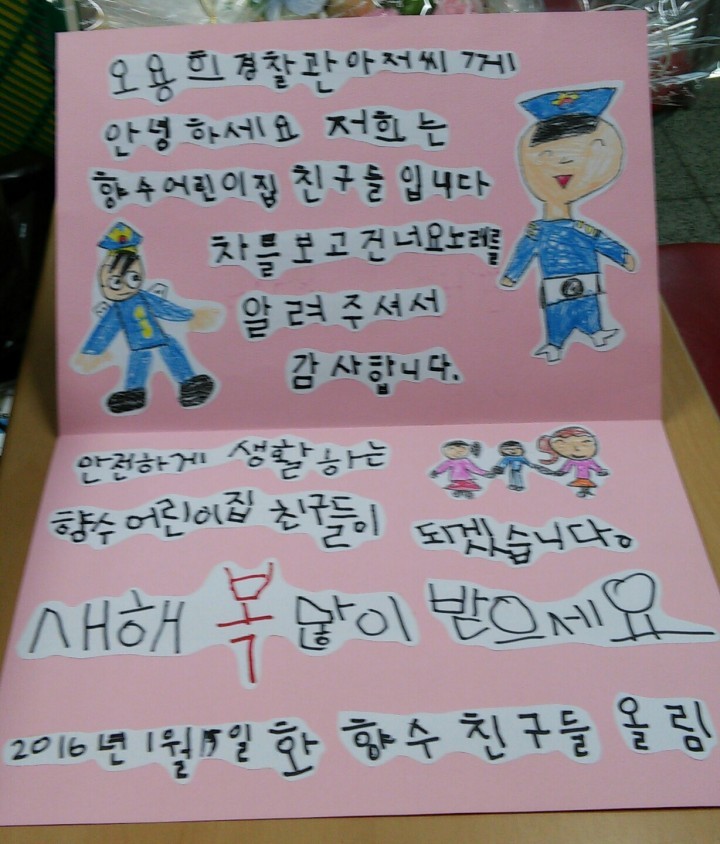 오용희경찰관아저씨께
안녕하세요 저희는
향수어린이집 친구들입니다
차를보고건너요노래를
알려주셔서
감사합니다.
안전하게 생활하는
향수어린이집 친구들이 되겠습니다.
새해 복 많이 받으세요
2016년 1월 15일 화 향수친구들 올림